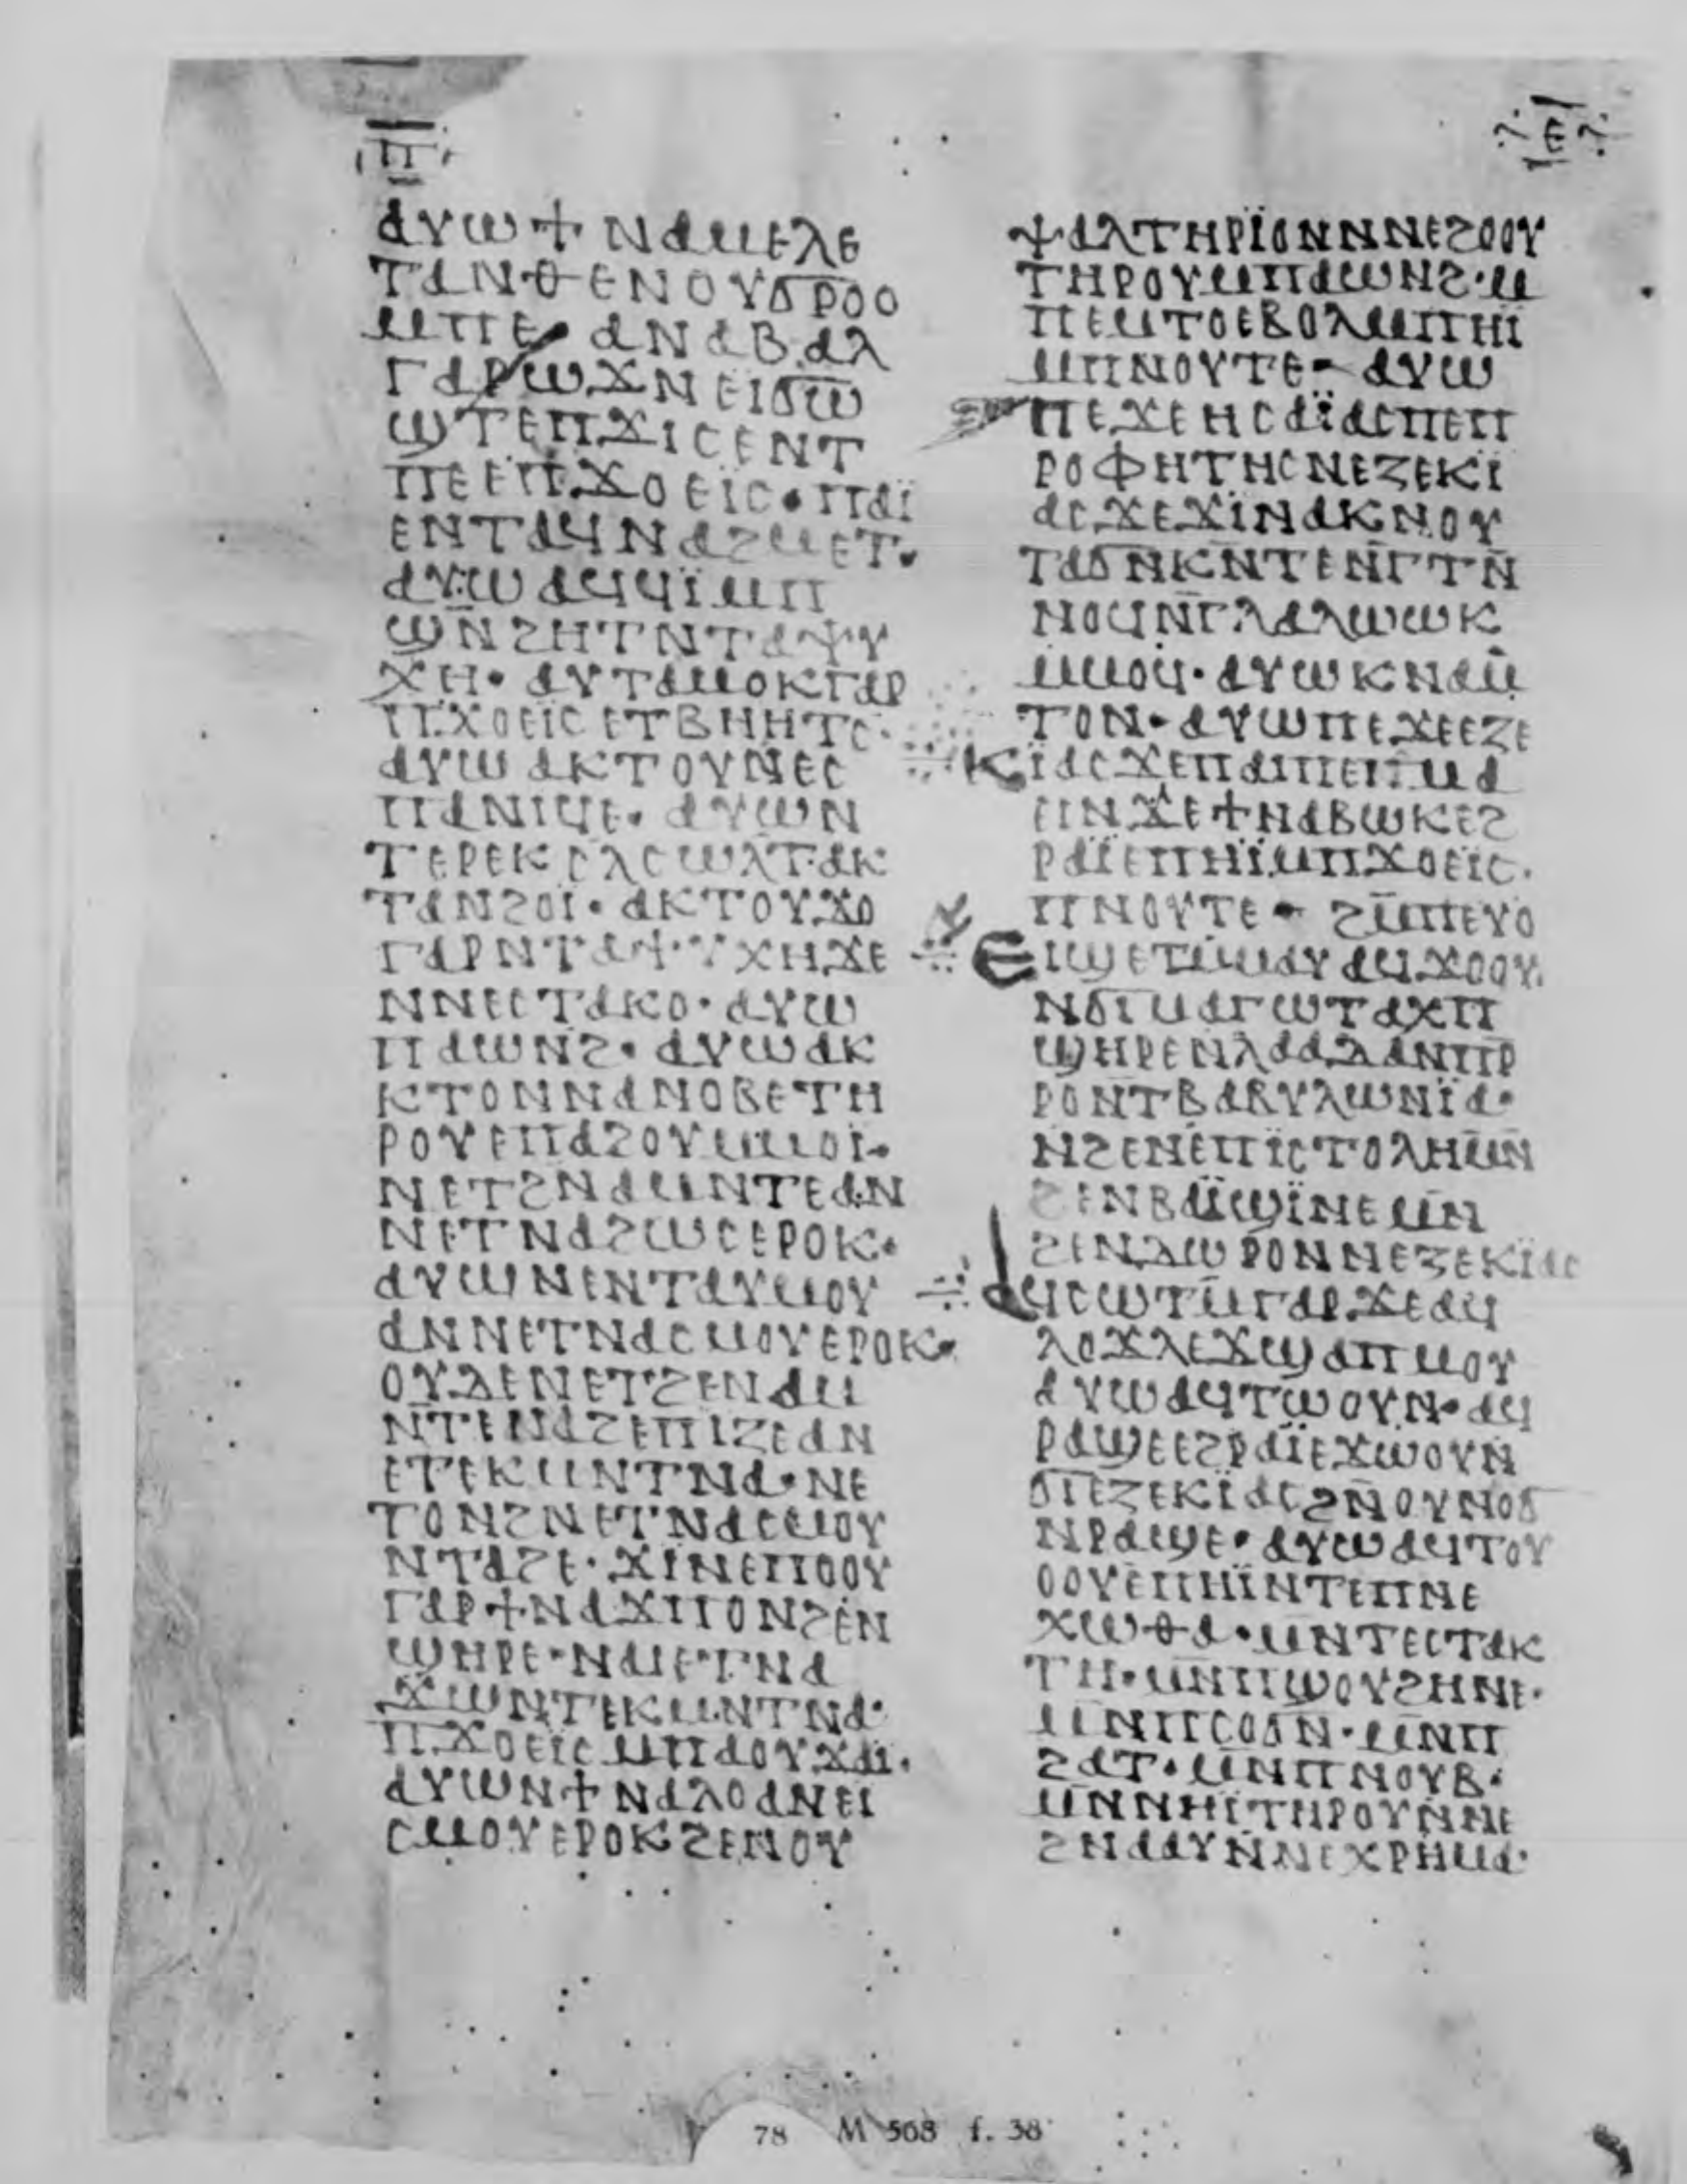 ⲡ
ⲉ
ⲁⲩⲱϯⲛⲁⲙⲉⲗⲉ
ⲧⲁⲛⲑⲉⲛⲟⲩϭⲣⲟⲟ
ⲙⲡⲉ· ⲁⲛⲁⲃⲁⲗ
ⲅⲁⲣⲱϫⲛⲉⲓϭⲱ
ϣⲧⲉⲡϫⲓⲥⲉⲛⲧ
ⲡⲉⲉⲡϫⲟⲉⲓⲥ·ⲡⲁⲓ̈
ⲉⲛⲧⲁϥⲛⲁϩⲙⲉⲧ·
ⲁⲩⲱⲁϥϥⲓ̈ⲙⲡ
ϣⲛ̄ϩⲏⲧⲛⲧⲁⲯⲩ
ⲭⲏ· ⲁⲩⲧⲁⲙⲟⲕⲅⲁⲣ
ⲡϫⲟⲉⲓⲥⲉⲧⲃⲏⲏⲧⲥ·
ⲁⲩⲱⲁⲕⲧⲟⲩⲛⲉⲥ
ⲡⲁⲛⲓϥⲉ· ⲁⲩⲱⲛ
ⲧⲉⲣⲉⲕⲥⲗⲥⲱⲗⲧ·ⲁⲕ
ⲧⲁⲛϩⲟⲓ̈· ⲁⲕⲧⲟⲩϫⲟ
ⲅⲁⲣⲛⲧⲁⲯⲩⲭⲏϫⲉ
ⲛⲛⲉⲥⲧⲁⲕⲟ· ⲁⲩⲱ
ⲡⲁⲱⲛϩ· ⲁⲩⲱⲁⲕ
ⲕⲧⲟⲛⲛⲁⲛⲟⲃⲉⲧⲏ
ⲣⲟⲩⲉⲡⲁϩⲟⲩⲙⲙⲟⲓ̈·
ⲛⲉⲧϩⲛⲁⲙⲛⲧⲉⲁⲛ
ⲛⲉⲧⲛⲁϩⲱⲥⲉⲣⲟⲕ·
ⲁⲩⲱⲛⲉⲛⲧⲁⲩⲙⲟⲩ
ⲁⲛⲛⲉⲧⲛⲁⲥⲙⲟⲩⲉⲣⲟⲕ·
ⲟⲩⲇⲉⲛⲉⲧϩⲉⲛⲁⲙ
ⲛⲧⲉⲛⲁϩⲉⲡⲓⲍⲉⲁⲛ
ⲉⲧⲉⲕⲙⲛⲧⲛⲁ·ⲛⲉ
ⲧⲟⲛϩⲛⲉⲧⲛⲁⲥⲙⲟⲩ
ⲛⲧⲁϩⲉ·ϫⲓⲛⲉⲡⲟⲟⲩ
ⲅⲁⲣϯⲛⲁϫⲡⲟⲛϩⲉⲛ
ϣⲏⲣⲉ·ⲛⲁⲓⲉⲧⲛⲁ
ϫⲱⲛⲧⲉⲕⲙⲛⲧⲛⲁ·
ⲡϫⲟⲉⲓⲥⲙⲡⲁⲟⲩϫⲁⲓ·
ⲁⲩⲱⲛϯⲛⲁⲗⲟⲁⲛⲉⲓ
ⲥⲙⲟⲩⲉⲣⲟⲕϩⲉⲛⲟⲩ
ⲯⲁⲗⲧⲏⲣⲓ̈ⲟⲛⲛⲛⲉϩⲟⲟⲩ
ⲧⲏⲣⲟⲩⲙⲡⲁⲱⲛϩ·ⲙ
ⲡⲉⲙⲧⲟⲉⲃⲟⲗⲙⲡⲏⲓ̈
ⲙⲡⲛⲟⲩⲧⲉ· ⲁⲩⲱ
ⲡⲉϫⲉⲏⲥⲁⲓ̈ⲁⲥⲡⲉⲡ
ⲣⲟⲫⲏⲧⲏⲥⲛⲉⲍⲉⲕⲓ
ⲁⲥϫⲉϫⲓⲛⲁⲕⲛⲟⲩ
ⲧⲁϭⲛⲕⲛⲧⲉⲛⲅⲧⲛ̄
ⲛⲟϥⲛ̄ⲅⲗⲁⲗⲱⲱⲕ
ⲙⲙⲟϥ·ⲁⲩⲱⲕⲛⲁⲙ̄
ⲧⲟⲛ· ⲁⲩⲱⲡⲉϫⲉⲉⲍⲉ
ⲕⲓ̈ⲁⲥϫⲉⲡⲁⲓⲡⲉⲡⲙⲁ
ⲉⲓⲛϫⲉϯⲛⲁⲃⲱⲕⲉϩ
ⲣⲁⲓ̈ⲉⲡⲏⲓ̈ⲙⲡϫⲟⲉⲓⲥ·
ⲡⲛⲟⲩⲧⲉ· ϩⲙ̄ⲡⲉⲩⲟ
ⲉⲓϣⲉⲧⲙ̄ⲙⲁⲩⲁϥϫⲟⲟⲩ
ⲛϭⲓⲙⲁⲅⲱⲧⲁϫⲡ
ϣⲏⲣⲉⲛⲗⲁⲁⲇⲁⲛⲡⲣ
ⲣⲟⲛⲧⲃⲁⲃⲩⲗⲱⲛⲓ̈ⲁ·
ⲛϩⲉⲛⲉⲡⲓ̈ⲥⲧⲟⲗⲏⲙⲛ̄
ϩⲉⲛⲃⲁⲓ̈ϣⲓ̈ⲛⲉⲙⲛ̄
ϩⲉⲛⲇⲱⲣⲟⲛⲛⲉⲍⲉⲕⲓ̈ⲁⲥ
ⲁϥⲥⲱⲧⲙ̄ⲅⲁⲣϫⲉⲁϥ
ⲗⲟϫⲗⲉϫϣⲁⲡⲙⲟⲩ
ⲁⲩⲱⲁϥⲧⲱⲟⲩⲛ·ⲁϥ
ⲣⲁϣⲉⲉϩⲣⲁⲓ̈ⲉϫⲱⲟⲩⲛ̄
ϭⲓⲉⲍⲉⲕⲓ̈ⲁⲥϩⲛ̄ⲟⲩⲛⲟϭ
ⲛⲣⲁϣⲉ· ⲁⲩⲱⲁϥⲧⲟⲩ
ⲟⲟⲩⲉⲡⲏⲓ̈ⲛⲧⲉⲡⲛⲉ
ⲭⲱⲑⲁ·ⲙⲛⲧⲉⲥⲧⲁⲕ
ⲧⲏ·ⲙⲛⲡϣⲟⲩϩⲏⲛⲉ·
ⲙⲛⲡⲥⲟϭⲛ·ⲙⲛⲡ
ϩⲁⲧ·ⲙⲛⲡⲛⲟⲩⲃ·
ⲙⲛⲛⲏⲓ̈ⲧⲏⲣⲟⲩⲛⲛⲉ
ϩⲛⲁⲁⲩⲛⲛⲉⲭⲣⲏⲙⲁ·
78 M 568 f. 38